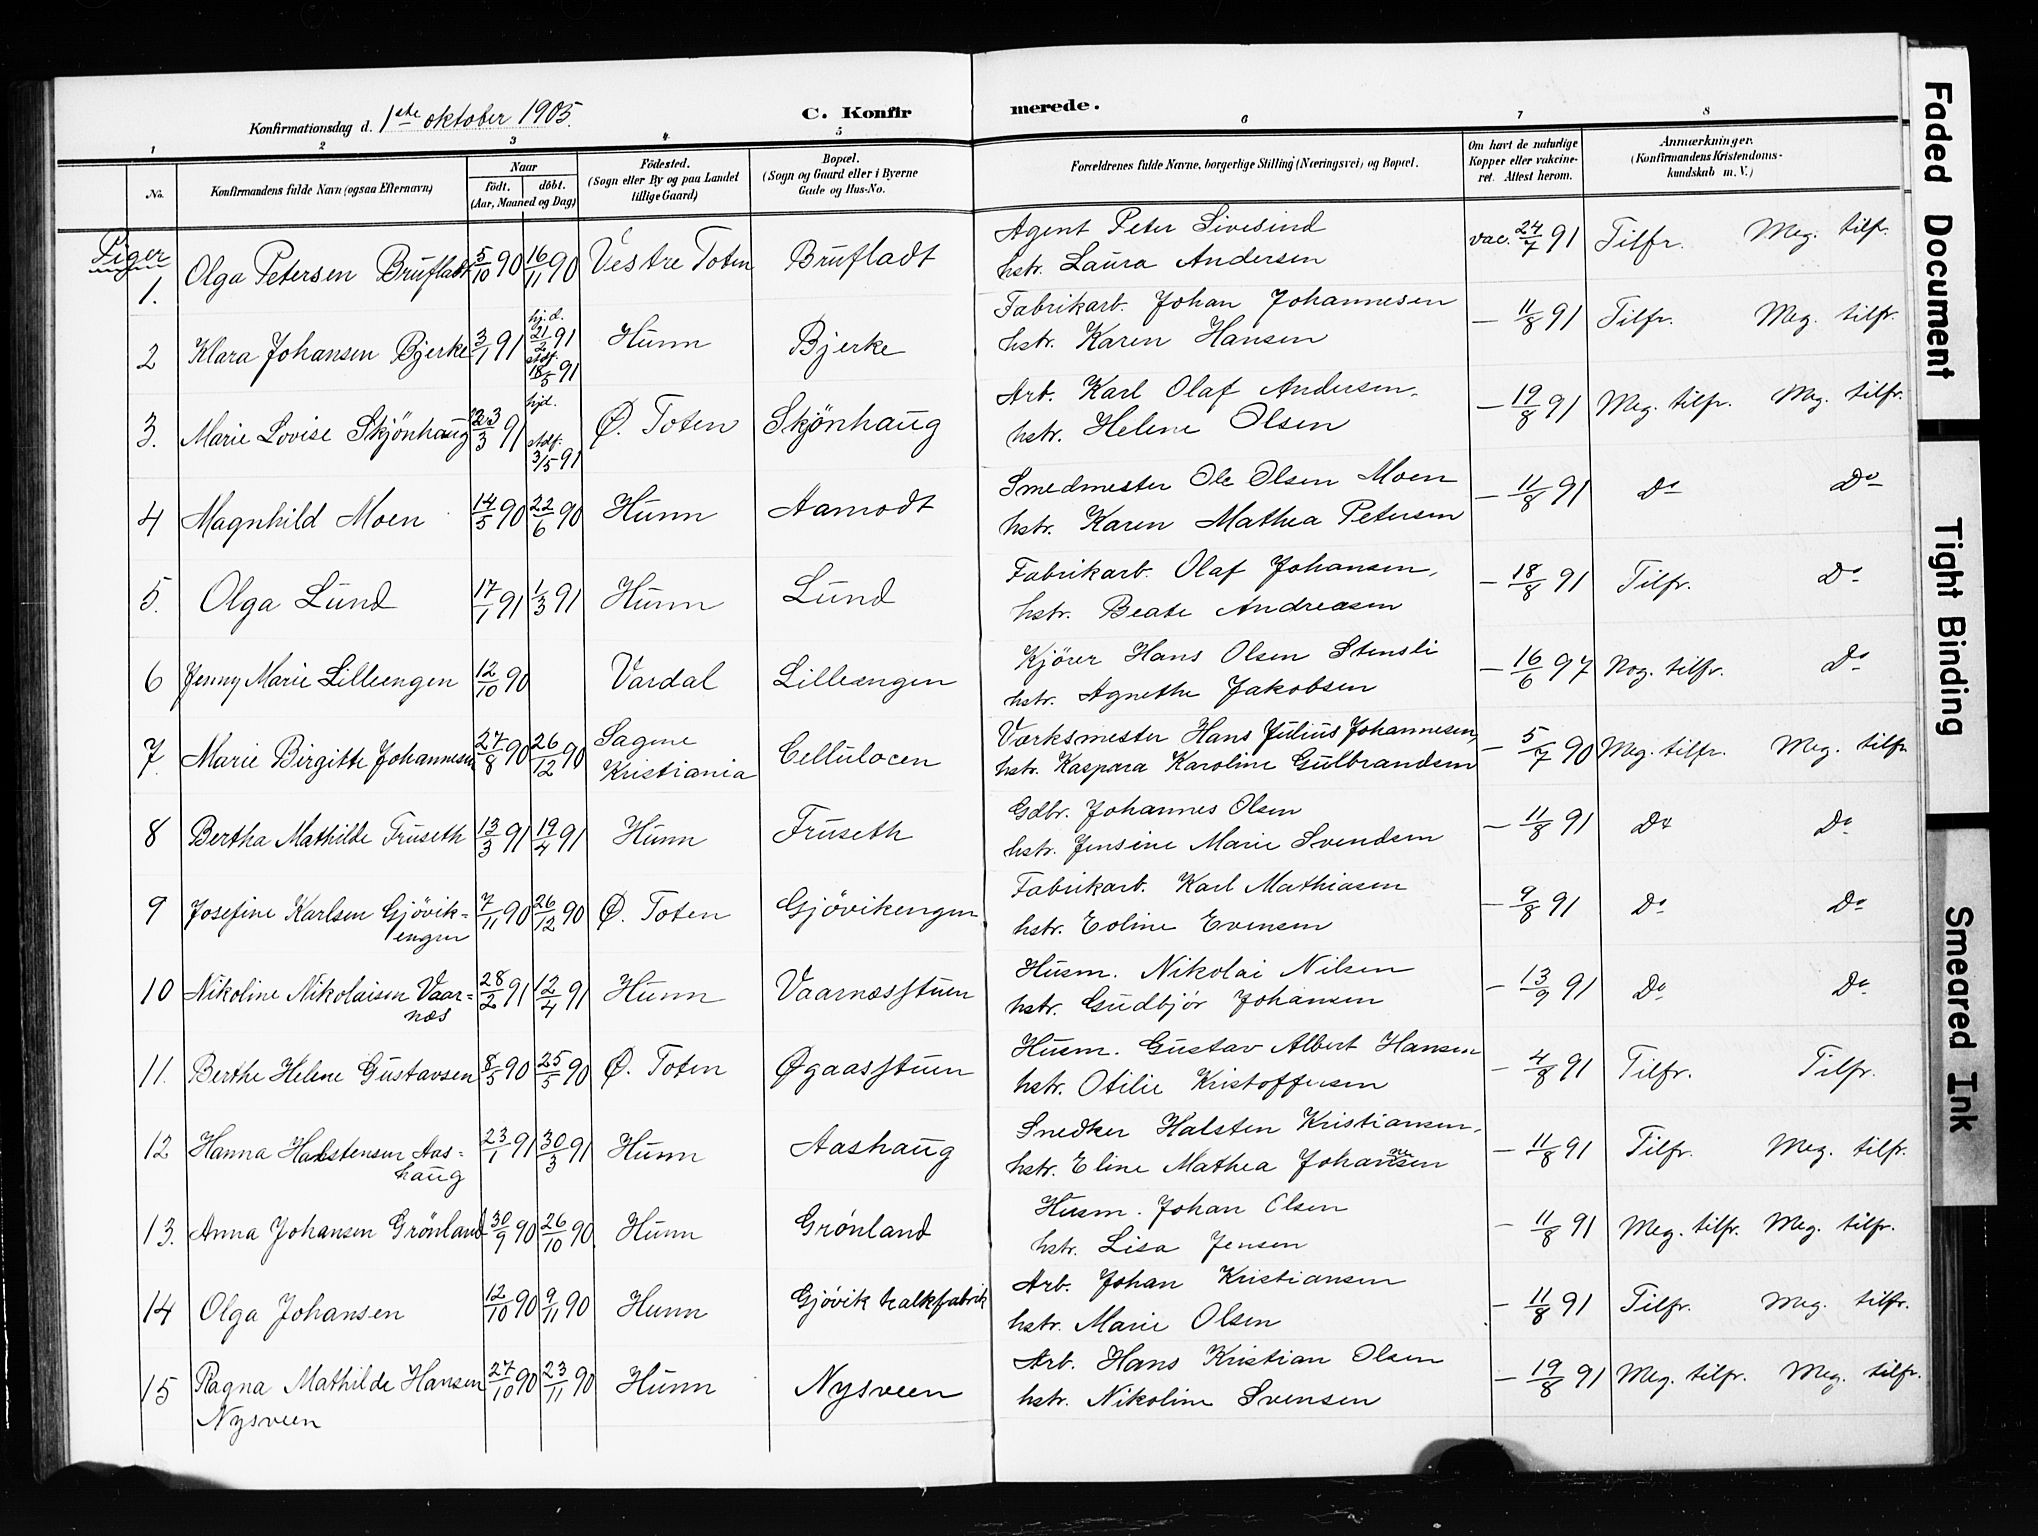 Konfirmationsdag d. 1ste oktober 1905.
C. Konfir
merede.
1 2 3 4. 5 6 7 8
No.
Konfirmandens fulde Navn (ogsaa Efternavn)
Naar
födt. döbt.
(Aar, Maaned og Dag)
Födested.
(Sogn eller By og paa Landet
tillige Gaard)
Bopæl.
(Sogn og Gaard eller i Byerne
Gade og Hus-No.
Forældrenes fulde Navne, borgerlige Stilling (Næringsvei) og Bopæl.
Om havt de naturlige
Kopper eller vakcine-
ret. Attest herom.
Anmærkninger.
(Konfirmandens Kristendoms-
kundskab m. V.)
Piger
1. Olga Petersen Brufladt 5/10 90 16/11 90 Vestre Toten Brufladt
Agent Peter Sivesind
hstr. Laura Andersen
vac. 24/7 91 Tilfr. Meg. tilfr.
2 Klara Johansen Bjerke 3/1 91 hj.d. 21/2 91 Stdf. 18/5 91 Hunn Bjerke
Fabrikarb. Johan Johannesen
hstr. Karen Hansen
— 11/8 91 Tilfr. Meg. tilfr.
3. Marie Lovise Skjönhaug 23/3 91 hjd. Stdf. 3/5 91 Ø. Toten Skjönhaug
Arb. Karl Olaf Andersen,
hstr. Helene Olsen
— 19/8 91 Meg. tilfr. Meg. tilfr.
4 Magnhild Moen 14/5 90 22/6 90 Hunn Aamodt
Smedmester Ole Olsen Moen
hstr. Karen Mathea Petersen
— 11/8 91 Do Do
5. Olga Lund 17/1 91 1/3 91 Hunn Lund
Fabrikarb. Olaf Johansen,
hstr. Beate Andreasen
— 18/8 91 Tilfr. Do
6 Jenny Marie Lilleengen 12/10 90 Vardal Lilleengen
Kjörer Hans Olsen Stensli
hstr. Agnethe Jakobsen
— 16/6 97 Nog. tilfr. Do
7. Marie Birgitte Johannesen 27/8 90 26/12 90 Sagene
Kristiania Cellulocen
Værksmester Hans Julius Johannesen,
hstr. Kaspara Karoline Gulbrandsen
— 5/7 90 Meg. tilfr. Meg. tilfr
8 Bertha Mathilde Fruseth 13/3 91 19/4 91 Hunn Fruseth
Gdbr. Johannes Olsen
hstr. Jensine Marie Svendsen
— 11/8 91 Do Do
9 Josefine Karlsen Gjövik-
engen 7/11 90 26/12 90 Ø. Toten Gjövikengen
Fabrikarb. Karl Mathiasen
hstr. Eoline Evensen
— 9/8 91 Do Do
10 Nikoline Nikolaisen Vaar-
næs 28/2 91 12/4 91 Hunn Vaarnæsstuen
Husm. Nikolai Nilsen
hstr. Gudbjör Johansen
— 13/9 91 Do Do
11. Berthe Helene Gustavsen 8/5 90 25/5 90 Ø. Toten Øgaasstuen
Husm. Gustav Albert Hansen
hstr. Otilie Kristoffersen
— 4/8 91 Tilfr. Tilfr.
12 Hanna Halstensen Aas-
haug 23/1 91 30/3 91 Hunn Aashaug
Snedker Halsten Kristiansen,
hstr. Eline Mathea Johansen
— 11/8 91 Tilfr. Meg. tilfr.
13. Anna Johansen Grönland 30/9 90 26/10 90. Hunn Grönland
Husm. Johan Olsen
hstr. Lisa Jensen
— 11/8 91 Meg. tilfr. Meg. tilfr.
14 Olga Johansen 12/10 90 9/11 90 Hunn Gjövik kalkfabrik
Arb. Johan Kristiansen
hstr. Marie Olsen
— 11/8 91 Tilfr. Meg. tilfr.
15 Ragna Mathilde Hansen
Nysveen 27/10 90 23/11 90 Hunn Nysveen
Arb. Hans Kristian Olsen
hstr. Nikoline Svensen
— 19/8 91 Meg. tilfr. Meg. tilfr.
Faded Document
Tight Binding
Smeared Ink